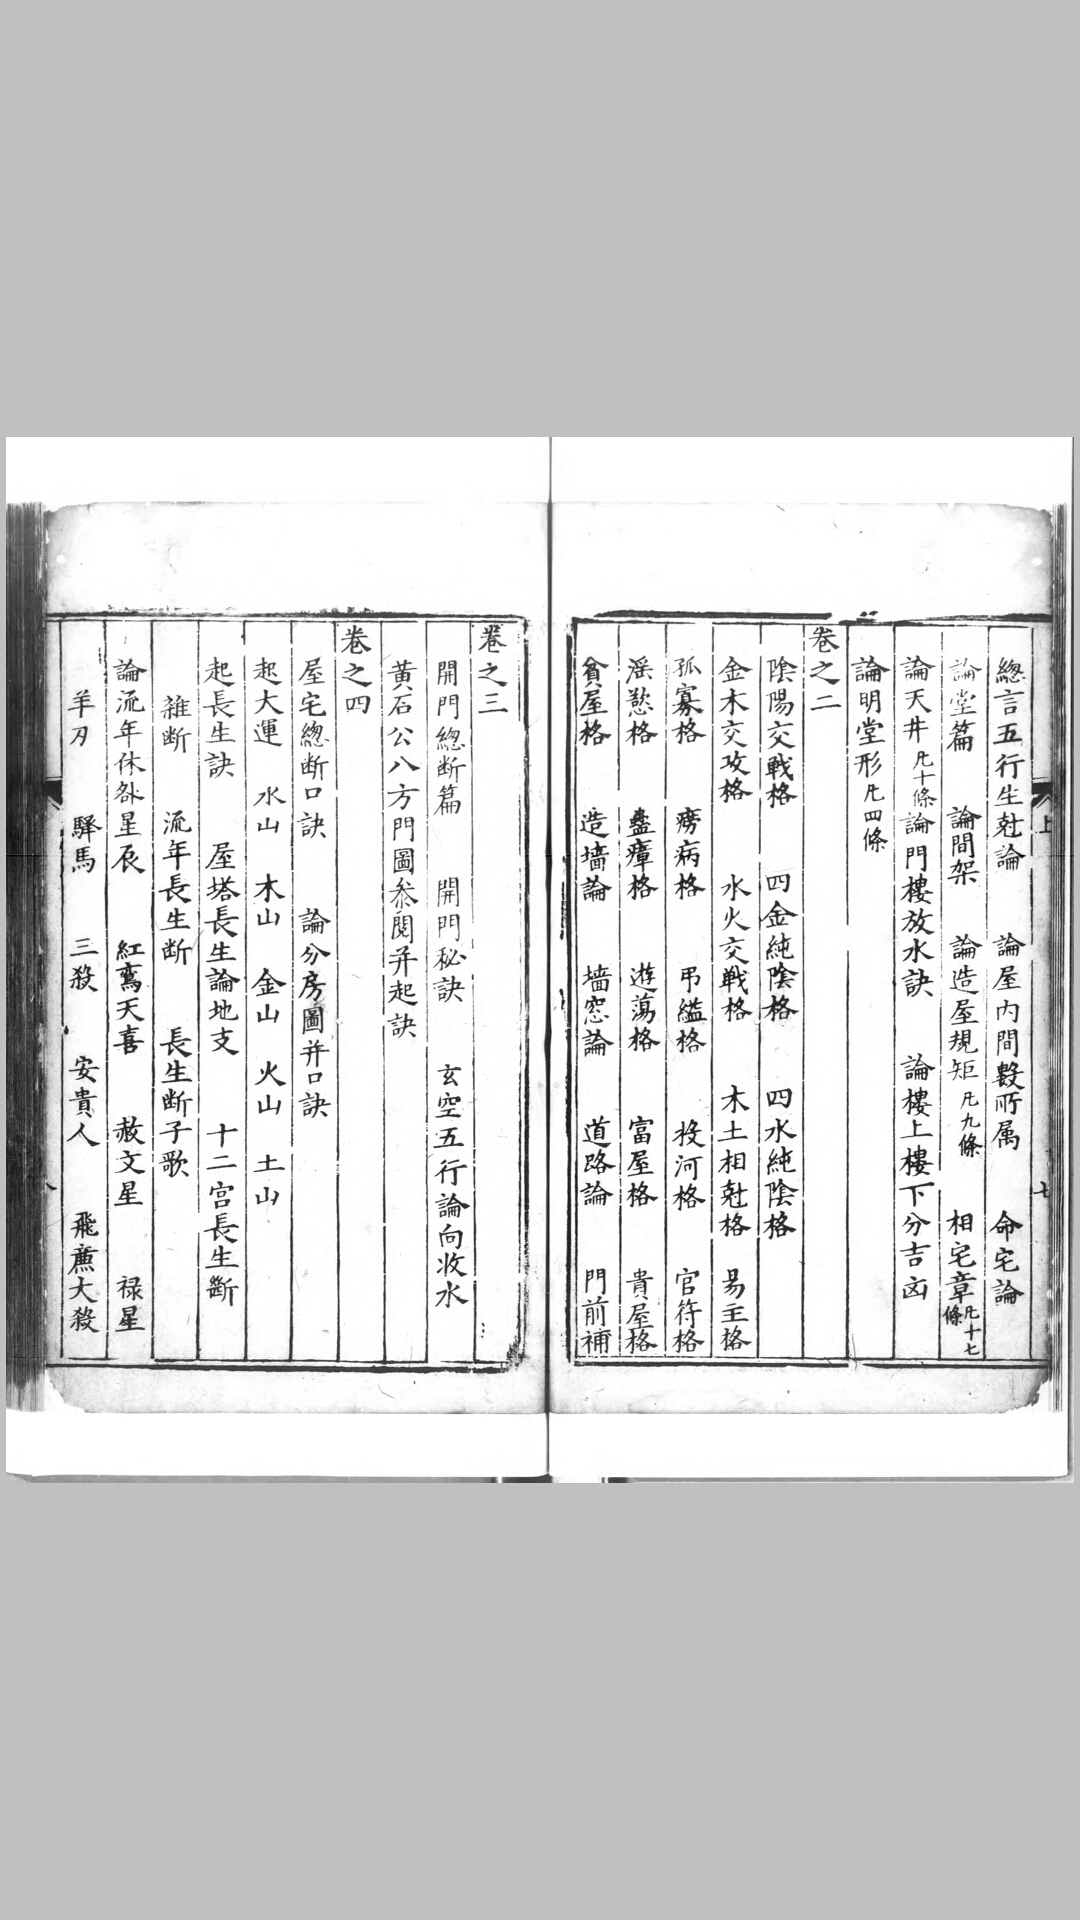 總言五行生尅論 論屋内間數所属 命宅論
論堂篇 論間架 論造屋規矩凡九條 相宅章凡十七條
論天井凡十條論門樓放水訣 論樓上樓下分吉凶
論明堂形凡四條
卷之二
陰陽交戰格 四金純陰格 四水純陰格
金木交攻格 水火交戰格 木土相尅格 易主格
孤寡格 癆病格 弔縊格 投河格 官符格
滛慾格 蠱瘴格 遊蕩格 富屋格 貴屋格
貧屋格 造墻論 墻窓論 道路論 門前補
上
七
卷之三
開門總断篇 開門秘訣 玄空五行論向收水
黄石公八方門圖参閱并起訣
卷之四
屋宅總断口訣 論分房圖并口訣
起大運 水山 木山 金山 火山 土山
起長生訣 屋塔長生論地支 十二宫長生斷
雜断 流年長生断 長生断子歌
論流年休咎星辰 紅鸞天喜 赦文星 禄星
羊刃 驛馬 三殺 安貴人 飛廉大殺